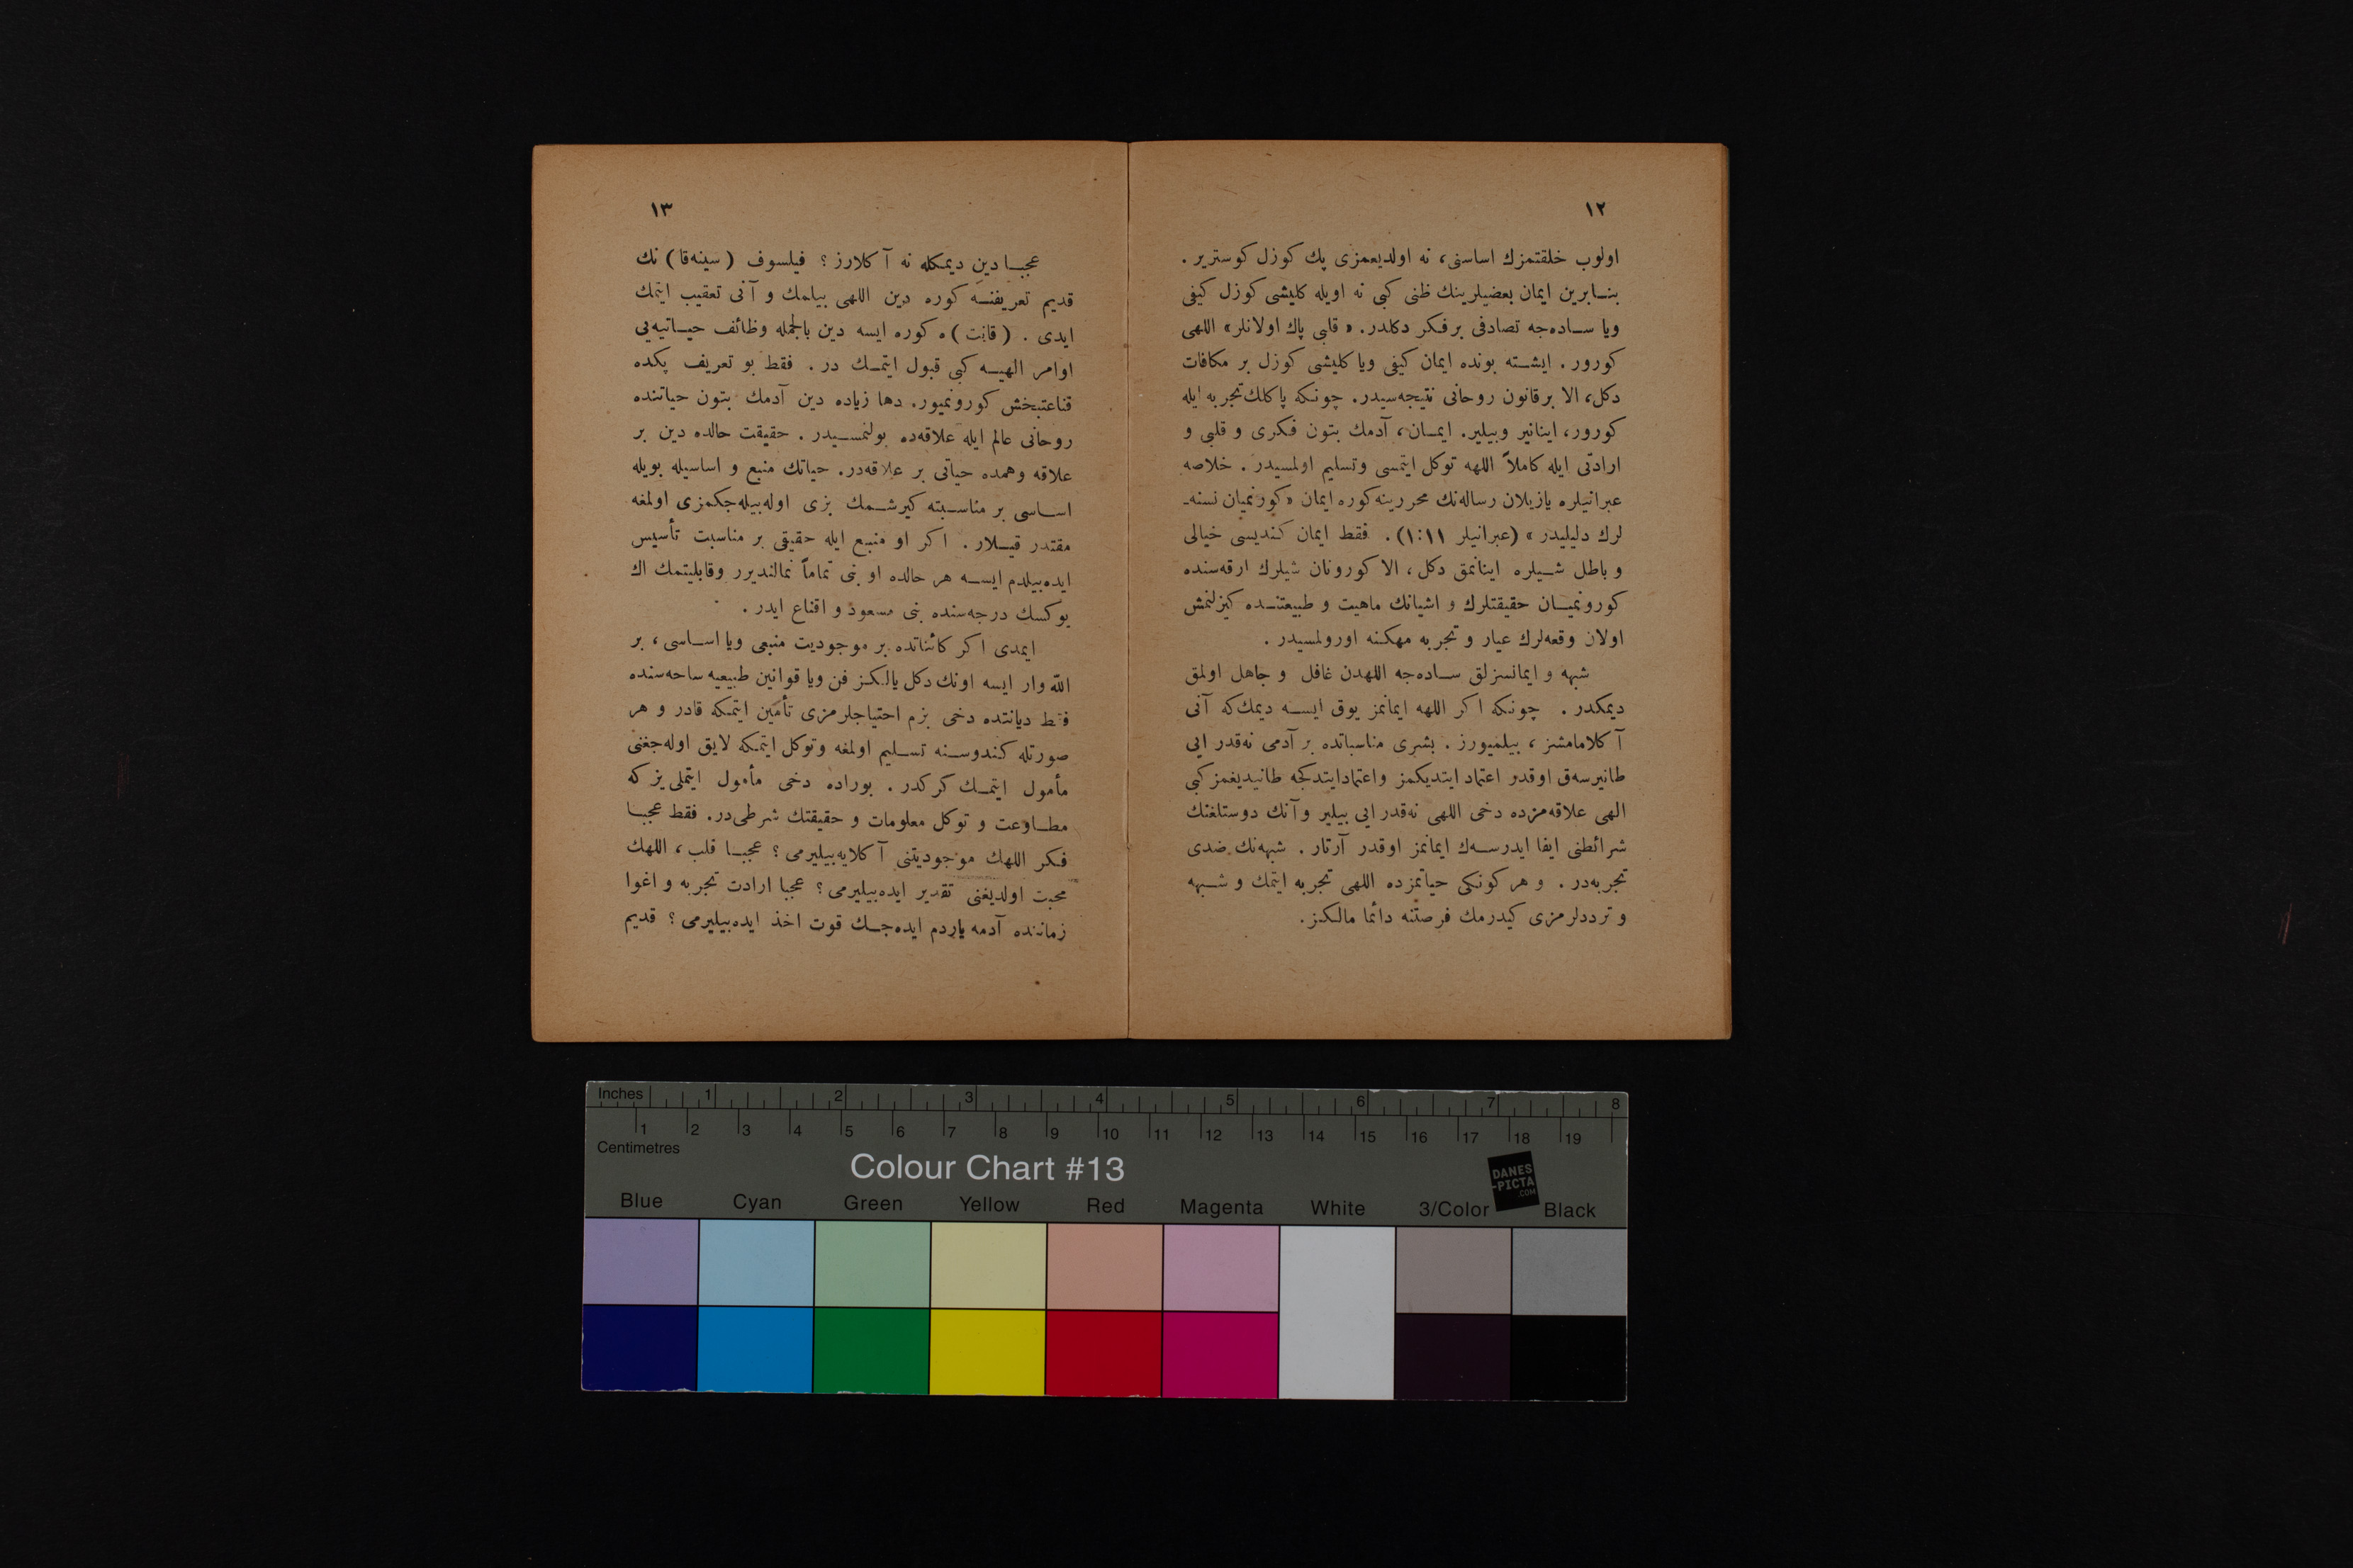 ١٢
اولوب خلقتمزك اساسنی، نه اولدیغمزی پك كوزل كوستریر .
بنـابرین ایمان بعضیلرینك ظنی كبی نه اویله كلیشی كوزل كیفی
ویا سـاده‌جه تصادفی برفكر دكلدر. « قلبی پاك اولانلر» اللهی
كورور . ایشـته بونده ایمان كیفی ویا كلیشی كوزل بر مكافات
دكل، الا برقانون روحانی نتیجه‌سیدر. چونكه پاكلك تجربه ایله
كورور، اینانیر وبیلیر. ایمـان، آدمك بتون فكری و قلبی و
ارادتی ایله كاملاً اللهه توكل ایتمسی وتسلیم اولمسیدر . خلاصه
عبرانیلره یازیلان رساله‌نك محررینه كوره ایمان « كورنمیان نسنه‌ـ
لرك دلیلیدر » (عبرانیلر ١١:١) . فقط ایمان كندیسی خیالی
و باطل شـیلره اینانمق دكل، الا كورونان شیلرك ارقه‌سنده
كورونمیـان حقیقتلرك و اشیانك ماهیت و طبیعتنـده كیزلنمش
اولان وقعه‌لرك عیار و تجربه مهكنه اورولمسیدر .
شبهه و ایمانسزلق سـاده‌جه اللهدن غافل و جاهل اولمق
دیمكدر . چونكه اكر اللهه ایمانمز یوق ایسـه دیمك كه آنی
آكلامامشز ، بیلمیورز . بشری مناسباتده بر آدمی نه‌قدر ایی
طانیرسه‌ق اوقدر اعتماد ایتدیكمز واعتمادایتدكجه طانیدیغمز كبی
الهی علاقه‌مزده دخی اللهی نه‌قدر ایی بیلیر وآنك دوستلغنك
شرائطنی ایفا ایدرسـه‌ك ایمانمز اوقدر آرتار . شبهه‌نك ضدی
تجربه‌در . و هر كونكی حیاتمزده اللهی تجربه ایتمك و شـبهه
و ترددلرمزی كیدرمك فرصتنه دائما مالكز.
١٣
عجبـا دین دیمكله نه آكلارز ؟ فیلسوف ( سینه‌قا ) نك
قدیم تعریفنـه كوره دین اللهی بیلمك و آنی تعقیب ایتمك
ایدی . ( قانت ) ه كوره ایسه دین بالجمله وظائف حیـاتیه‌یی
اوامر الهیـه كبی قبول ایتمـك در . فقط بو تعریف پكده
قناعتبخش كورونمیور. دها زیاده دین آدمك بتون حیاتنده
روحانی عالم ایله علاقه‌ده بولنمسـیدر . حقیقت حالده دین بر
علاقه وهمده حیاتی بر علاقه‌در. حیاتك منبع و اساسیله بویله
اسـاسی بر مناسـبته كیرشـمك بزی اوله‌بیله‌جكمزی اولمغه
مقتدر قیـلار . اكر او منبع ایله حقیقی بر مناسبت تأسیس
ایده‌بیلدم ایسـه هر حالده او بنی تماماً تمالندیرر وقابلیتمك اك
یوكسك درجه‌سنده بنی مسعود و اقناع ایدر .
ایمدی اكر كائناتده بر موجودیت منبعی ویا اسـاسی ، بر
الله وار ایسه اونك دكل یالكز فن ویا قوانین طبیعیه ساحه‌سنده
فقط دیانتده دخی بزم احتیاجلرمزی تأمین ایتمكه قادر و هر
صورتله كندوسـنه تسـلیم اولمغه وتوكل ایتمكه لایق اوله‌جغنی
مأمول ایتمـك كركدر . بوراده دخی مأمول ایتملی‌یز كه
مطـاوعت و توكل معلومات و حقیقتك شرطی‌در. فقط عجبـا
فكر اللهك موجودیتنی آكلایه‌بیلیرمی ؟ عجبـا قلب ، اللهك
محبت اولدیغنی تقدیر ایده‌بیلیرمی ؟ عجبا ارادت تجربه و اغوا
زماننده آدمه یاردم ایده‌جـك قوت اخذ ایده‌بیلیرمی ؟ قدیم
Inches 1 2 3 4 5 6 7 8
1 2 3 4 5 6 7 8 9 10 11 12 13 14 15 16 17 18 19
Centimetres
Colour Chart #13
DANES
-PICTA
.COM
Blue Cyan Green Yellow Red Magenta White 3/Color Black